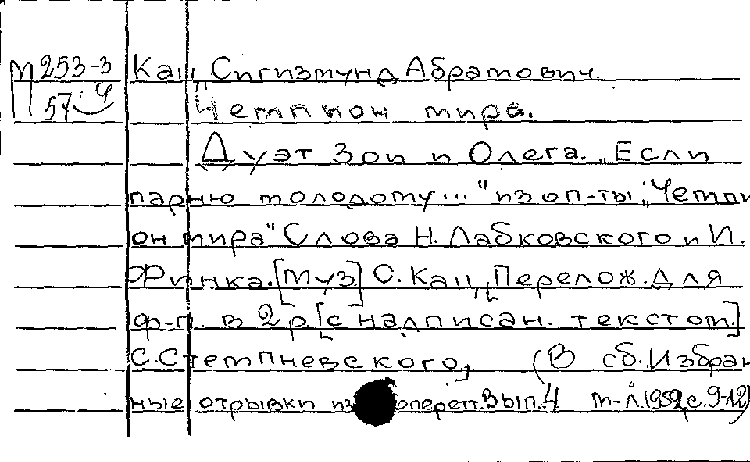 М 253-3 Кац, Сигизмунд Абрамович.
57:4 Чемпион мира.
Дуэт Зои и Олега. „Если
парню молодому..." из оп-ты „Чемпи-
он мира" Слова Н. Лабковского и И.
Финка. [Муз] С. Кац, Перелож. для
ф-п. в 2 р. [с надписан. текстом.]
С. Стемпневского, (В сб. Избран-
ные отрывки из оперетт. Вып. 4 М-Л. 1952, с. 9-12)